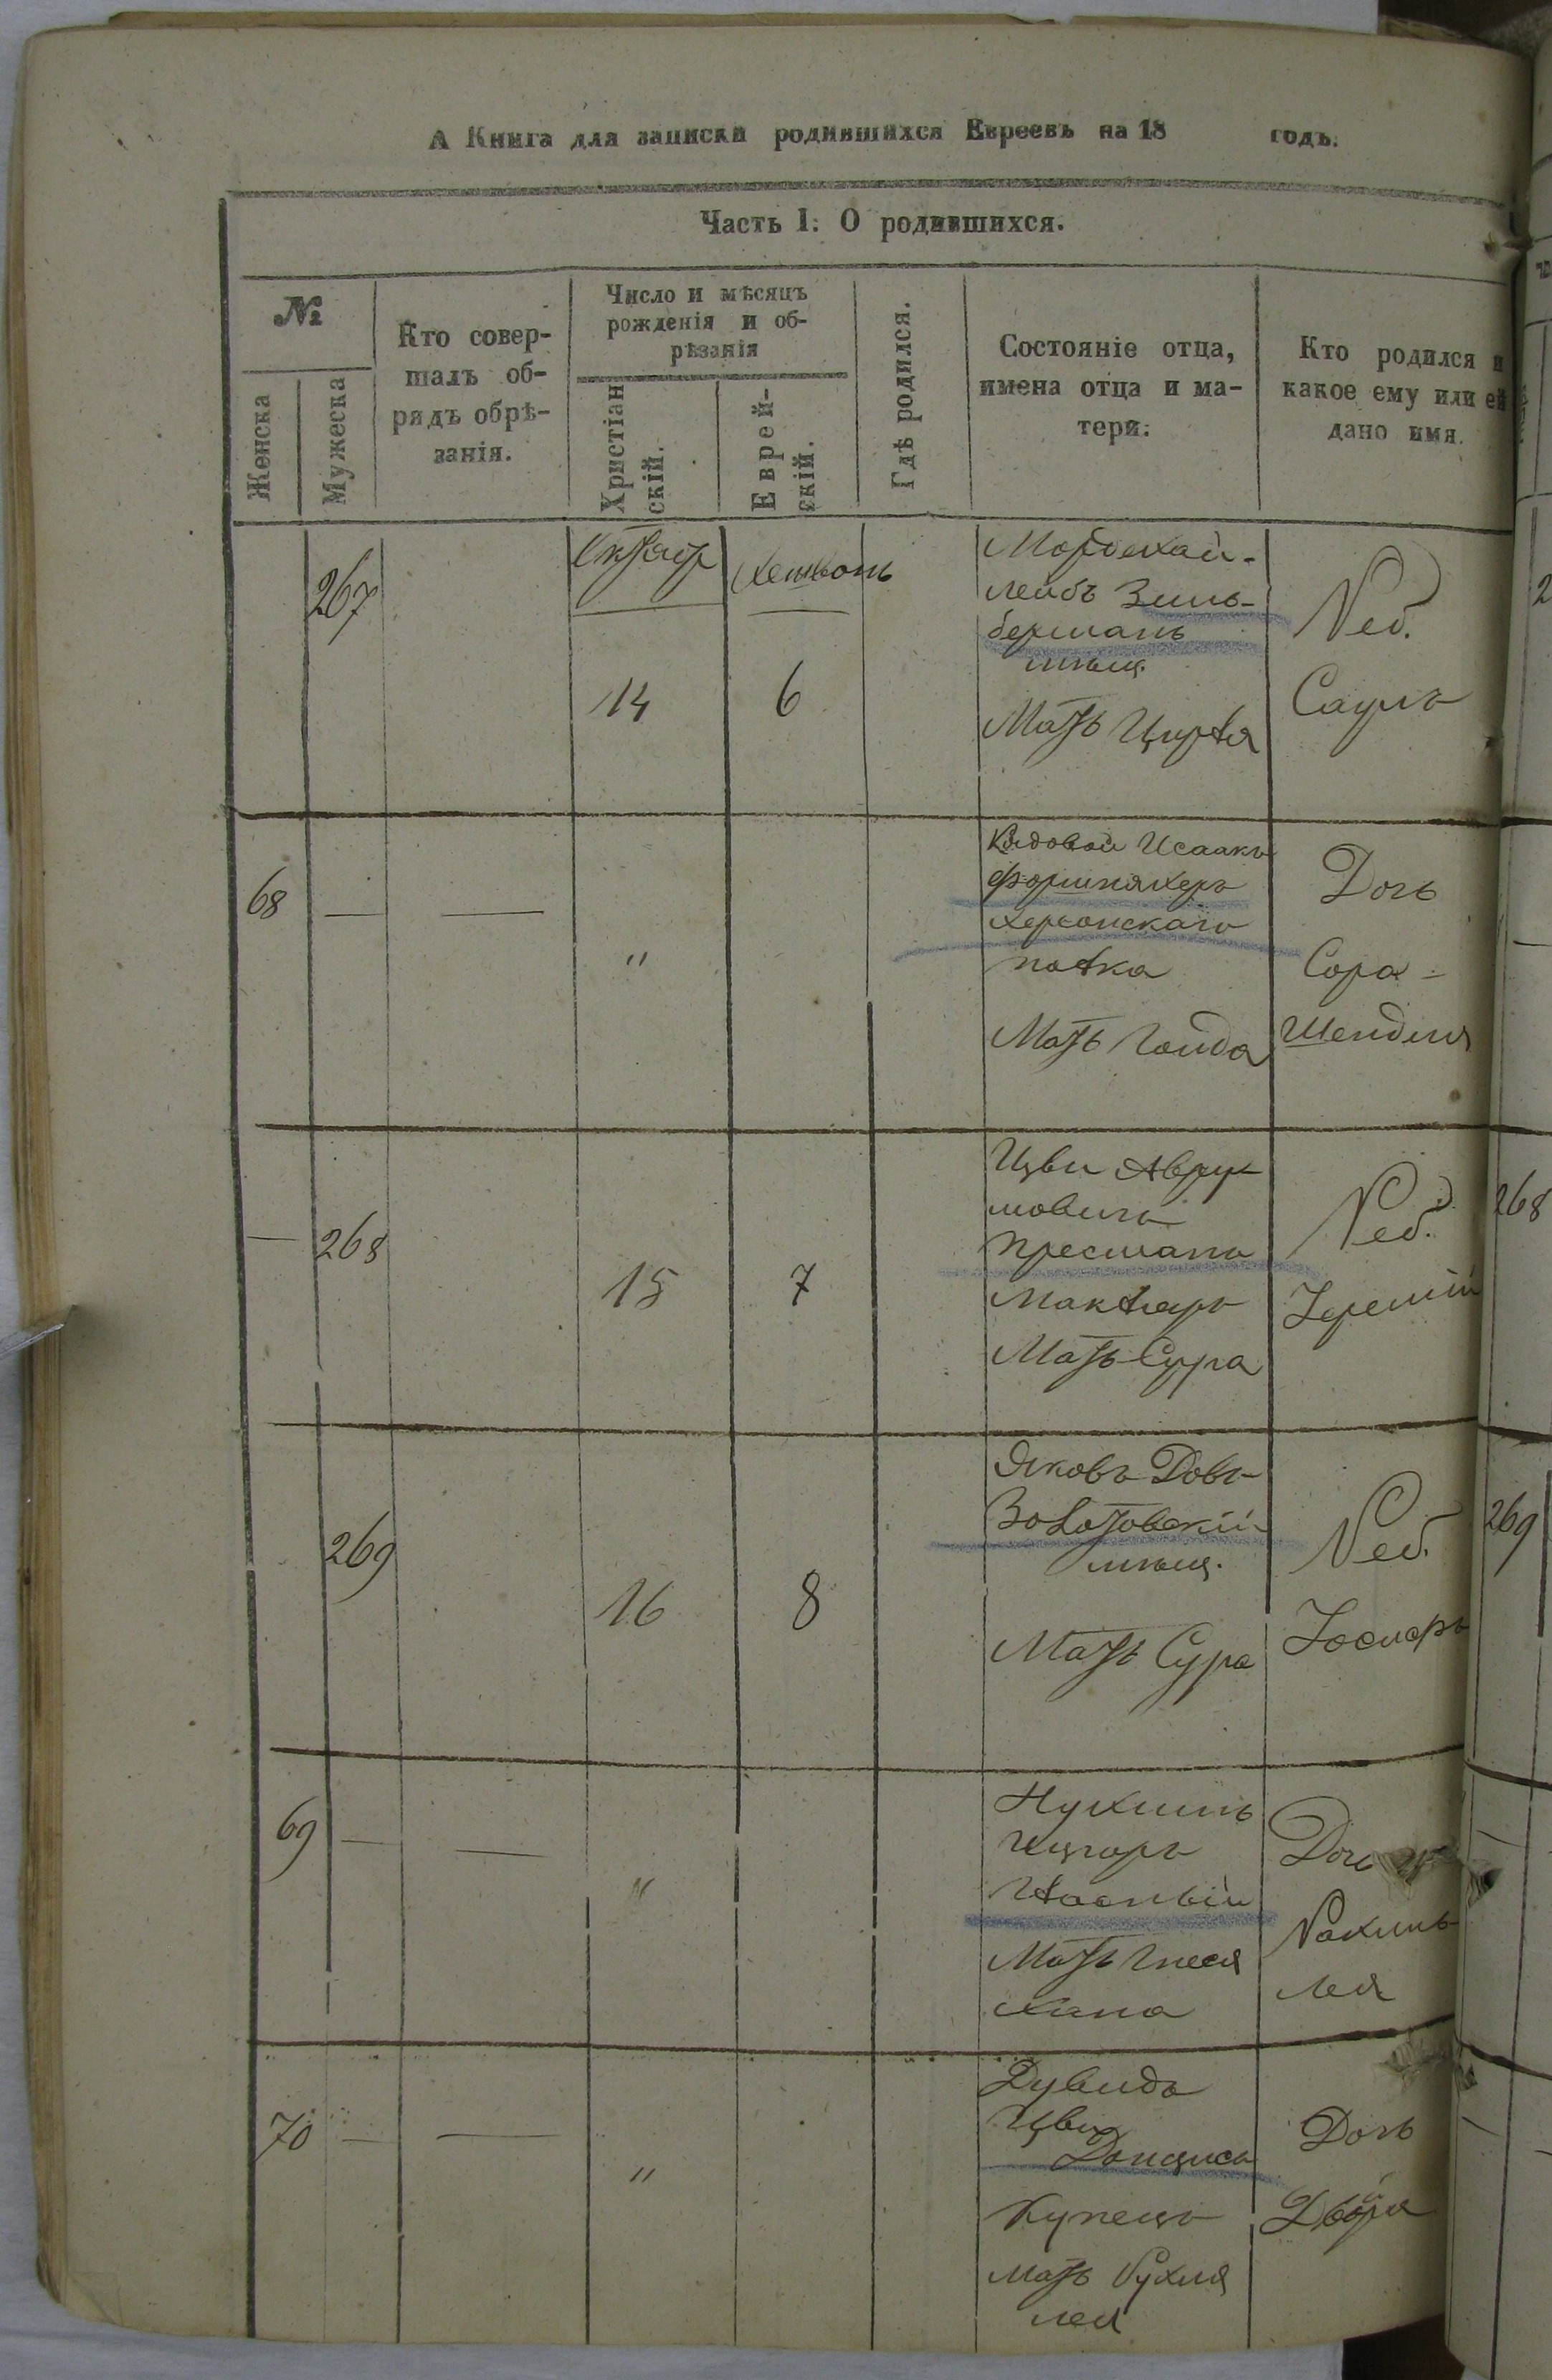 А Книга для записки родившихся Евреевъ на 18 годъ.
Часть I: О родившихся.
№
Женска
Мужеска
Кто совер-
шалъ об-
рядъ обрѣ-
занія.
Число и мѣсяцъ
рожденія и об-
рѣзанія
Христіан
скій.
Еврей-
скій.
Гдѣ родился.
Состояніе отца,
имена отца и ма-
тери.
Кто родился и
какое ему или ей
дано имя.
267
Октябр
Хешвонь
14
6
Мордехай-
Лейбъ Зиль-
берманъ
мѣщ.
Мать Цирля
Реб.
Саулъ
68
—
—
"
Рядовой Исаакъ
Херсонскаго
полка
Мать Гольда
Дочь
Сора-
Шендля
—
268
15
7
Цви Авру-
мовичъ
Пресманъ
Маклеръ
Мать Сура
Реб.
Іеремій
269
16
8
Яковъ Довъ
Золотовскій
мѣщ.
Мать Сура
Реб.
Іосифъ
69
—
—
"
Нухимъ
Мать Песя
Хана
Дочь
Рахиль
Лея
70
—
—
"
Дувидъ
Цви
Данцисъ
Купецъ
Мать Рухля
Лея
Дочь
Двойра
268
269